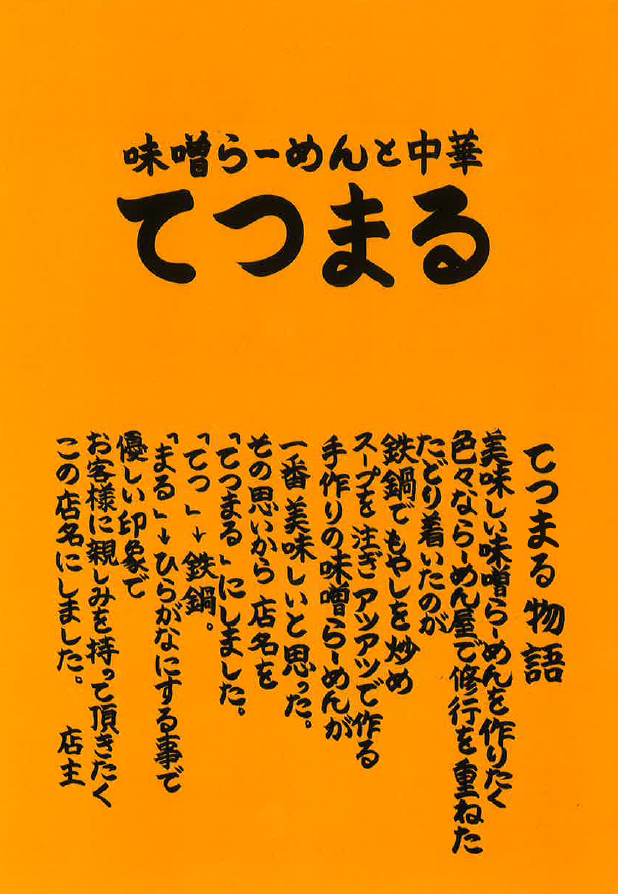 味噌らーめんと中華
てつまる
てつまる物語
美味しい味噌らーめんを作りたく
色々ならーめん屋で修行を重ねた
たどり着いたのが
鉄鍋でもやしを炒め
スープを注ぎアツアツで作る
手作りの味噌らーめんが
一番美味しいと思った。
その思いから店名を
「てつまる」にしました。
「てつ」→鉄鍋。
「まる」→ひらがなにする事で
優しい印象で
お客様に親しみを持って頂きたく
この店名にしました。 店主